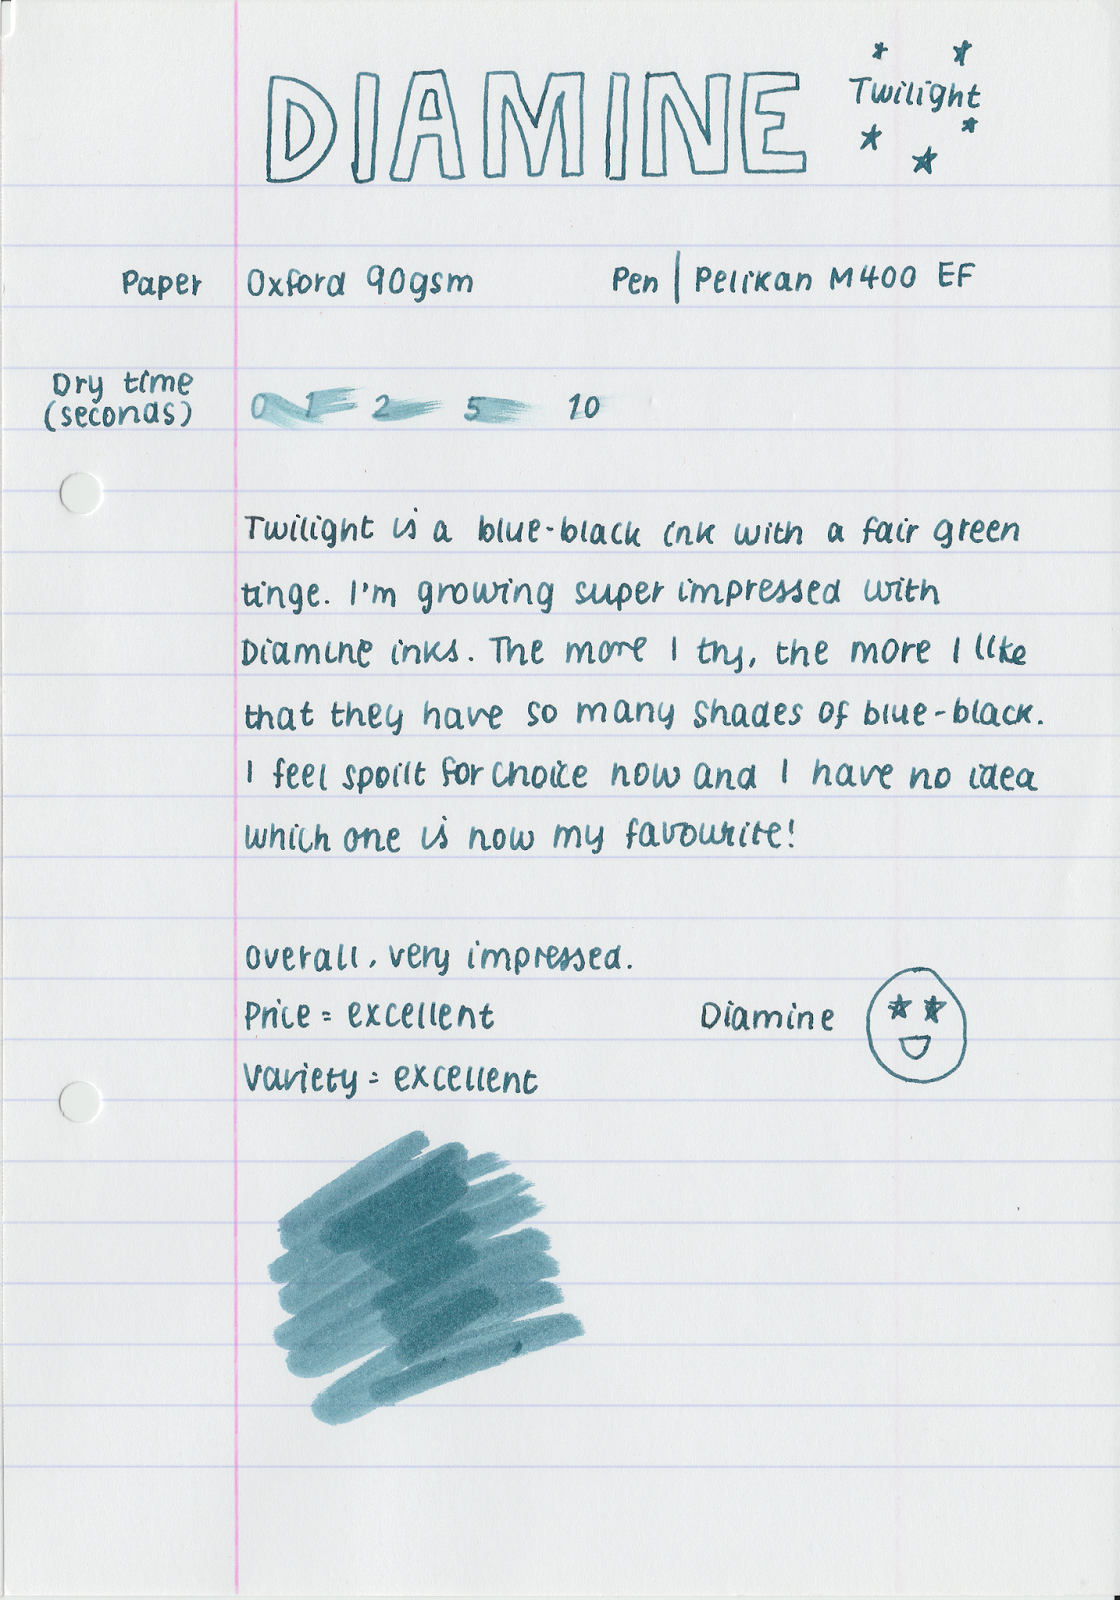 DIAMINE
Twilight
Paper Oxford 90gsm Pen | Pelikan M400 EF
Dry time
(seconds) 0 1 2 5 10
Twilight is a blue-black ink with a fair green
tinge. I'm growing super impressed with
Diamine inks. The more I try, the more I like
that they have so many shades of blue-black.
I feel spoilt for choice now and I have no idea
which one is now my favourite!
Overall, very impressed.
Price = excellent Diamine
Variety = excellent